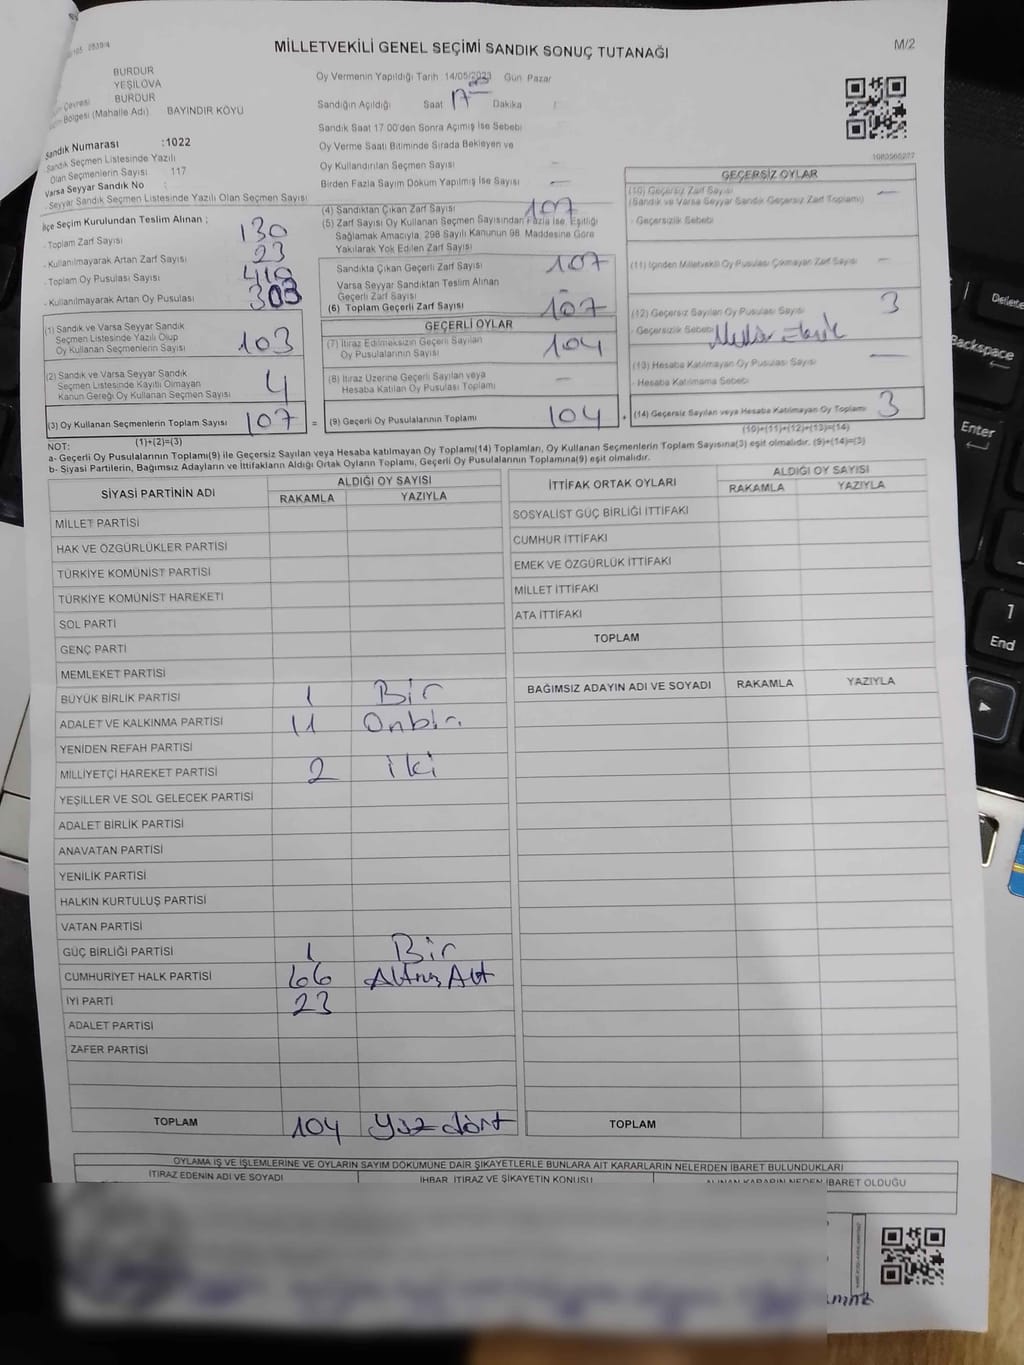 MİLLETVEKİLİ GENEL SEÇİMİ SANDIK SONUÇ TUTANAĞI
M/2
BURDUR
YEŞİLOVA
Çevresi BURDUR
Bölgesi (Mahalle Adı) BAYINDIR KÖYÜ
Sandık Numarası :1022
Sandık Seçmen Listesinde Yazılı
Olan Seçmenlerin Sayısı 117
Varsa Seyyar Sandık No :
Seyyar Sandık Seçmen Listesinde Yazılı Olan Seçmen Sayısı
Oy Vermenin Yapıldığı Tarih 14/05/2023 Gün Pazar
Sandığın Açıldığı Saat 17 Dakika
Sandık Saat 17.00'den Sonra Açılmış İse Sebebi
Oy Verme Saati Bitiminde Sırada Bekleyen ve
Oy Kullandırılan Seçmen Sayısı —
Birden Fazla Sayım Döküm Yapılmış İse Sayısı —
1083565277
İlçe Seçim Kurulundan Teslim Alınan ;
- Toplam Zarf Sayısı 130
- Kullanılmayarak Artan Zarf Sayısı 23
- Toplam Oy Pusulası Sayısı 410
- Kullanılmayarak Artan Oy Pusulası 303
(1) Sandık ve Varsa Seyyar Sandık
Seçmen Listesinde Yazılı Olup
Oy Kullanan Seçmenlerin Sayısı 103
(2) Sandık ve Varsa Seyyar Sandık
Seçmen Listesinde Kayıtlı Olmayan
Kanun Gereği Oy Kullanan Seçmen Sayısı 4
(3) Oy Kullanan Seçmenlerin Toplam Sayısı 107 =
(1)+(2)=(3)
(4) Sandıktan Çıkan Zarf Sayısı 107
(5) Zarf Sayısı Oy Kullanan Seçmen Sayısından Fazla İse, Eşitliği
Sağlamak Amacıyla, 298 Sayılı Kanunun 98. Maddesine Göre
Yakılarak Yok Edilen Zarf Sayısı
Sandıkta Çıkan Geçerli Zarf Sayısı 107
Varsa Seyyar Sandıktan Teslim Alınan
Geçerli Zarf Sayısı —
(6) Toplam Geçerli Zarf Sayısı 107
GEÇERLİ OYLAR
(7) İtiraz Edilmeksizin Geçerli Sayılan
Oy Pusulalarının Sayısı 104
(8) İtiraz Üzerine Geçerli Sayılan veya
Hesaba Katılan Oy Pusulası Toplamı —
(9) Geçerli Oy Pusulalarının Toplamı 104 +
GEÇERSİZ OYLAR
(10) Geçersiz Zarf Sayısı —
(Sandık ve Varsa Seyyar Sandık Geçersiz Zarf Toplamı)
- Geçersizlik Sebebi
(11) İçinden Milletvekili Oy Pusulası Çıkmayan Zarf Sayısı —
(12) Geçersiz Sayılan Oy Pusulası Sayısı 3
- Geçersizlik Sebebi
(13) Hesaba Katılmayan Oy Pusulası Sayısı —
- Hesaba Katılmama Sebebi
(14) Geçersiz Sayılan veya Hesaba Katılmayan Oy Toplamı 3
(10)+(11)+(12)+(13)=(14)
NOT:
a- Geçerli Oy Pusulalarının Toplamı(9) ile Geçersiz Sayılan veya Hesaba katılmayan Oy Toplamı(14) Toplamları, Oy Kullanan Seçmenlerin Toplam Sayısına(3) eşit olmalıdır. (9)+(14)=(3)
b- Siyasi Partilerin, Bağımsız Adayların ve İttifakların Aldığı Ortak Oyların Toplamı, Geçerli Oy Pusulalarının Toplamına(9) eşit olmalıdır.
SİYASİ PARTİNİN ADI ALDIĞI OY SAYISI
RAKAMLA YAZIYLA
MİLLET PARTİSİ
HAK VE ÖZGÜRLÜKLER PARTİSİ
TÜRKİYE KOMÜNİST PARTİSİ
TÜRKİYE KOMÜNİST HAREKETİ
SOL PARTİ
GENÇ PARTİ
MEMLEKET PARTİSİ
BÜYÜK BİRLİK PARTİSİ 1 Bir
ADALET VE KALKINMA PARTİSİ 11 Onbir
YENİDEN REFAH PARTİSİ
MİLLİYETÇİ HAREKET PARTİSİ 2 iki
YEŞİLLER VE SOL GELECEK PARTİSİ
ADALET BİRLİK PARTİSİ
ANAVATAN PARTİSİ
YENİLİK PARTİSİ
HALKIN KURTULUŞ PARTİSİ
VATAN PARTİSİ
GÜÇ BİRLİĞİ PARTİSİ 1 Bir
CUMHURİYET HALK PARTİSİ 66 Altmış Altı
İYİ PARTİ 23
ADALET PARTİSİ
ZAFER PARTİSİ
TOPLAM 104 Yüz dört
İTTİFAK ORTAK OYLARI ALDIĞI OY SAYISI
RAKAMLA YAZIYLA
SOSYALİST GÜÇ BİRLİĞİ İTTİFAKI
CUMHUR İTTİFAKI
EMEK VE ÖZGÜRLÜK İTTİFAKI
MİLLET İTTİFAKI
ATA İTTİFAKI
TOPLAM
BAĞIMSIZ ADAYIN ADI VE SOYADI RAKAMLA YAZIYLA
TOPLAM
OYLAMA İŞ VE İŞLEMLERİNE VE OYLARIN SAYIM DÖKÜMÜNE DAİR ŞİKAYETLERLE BUNLARA AİT KARARLARIN NELERDEN İBARET BULUNDUKLARI
İTİRAZ EDENİN ADI VE SOYADI İHBAR, İTİRAZ VE ŞİKAYETİN KONUSU ALINAN KARARIN NEDEN İBARET OLDUĞU
Delete
Backspace
Enter
1
End